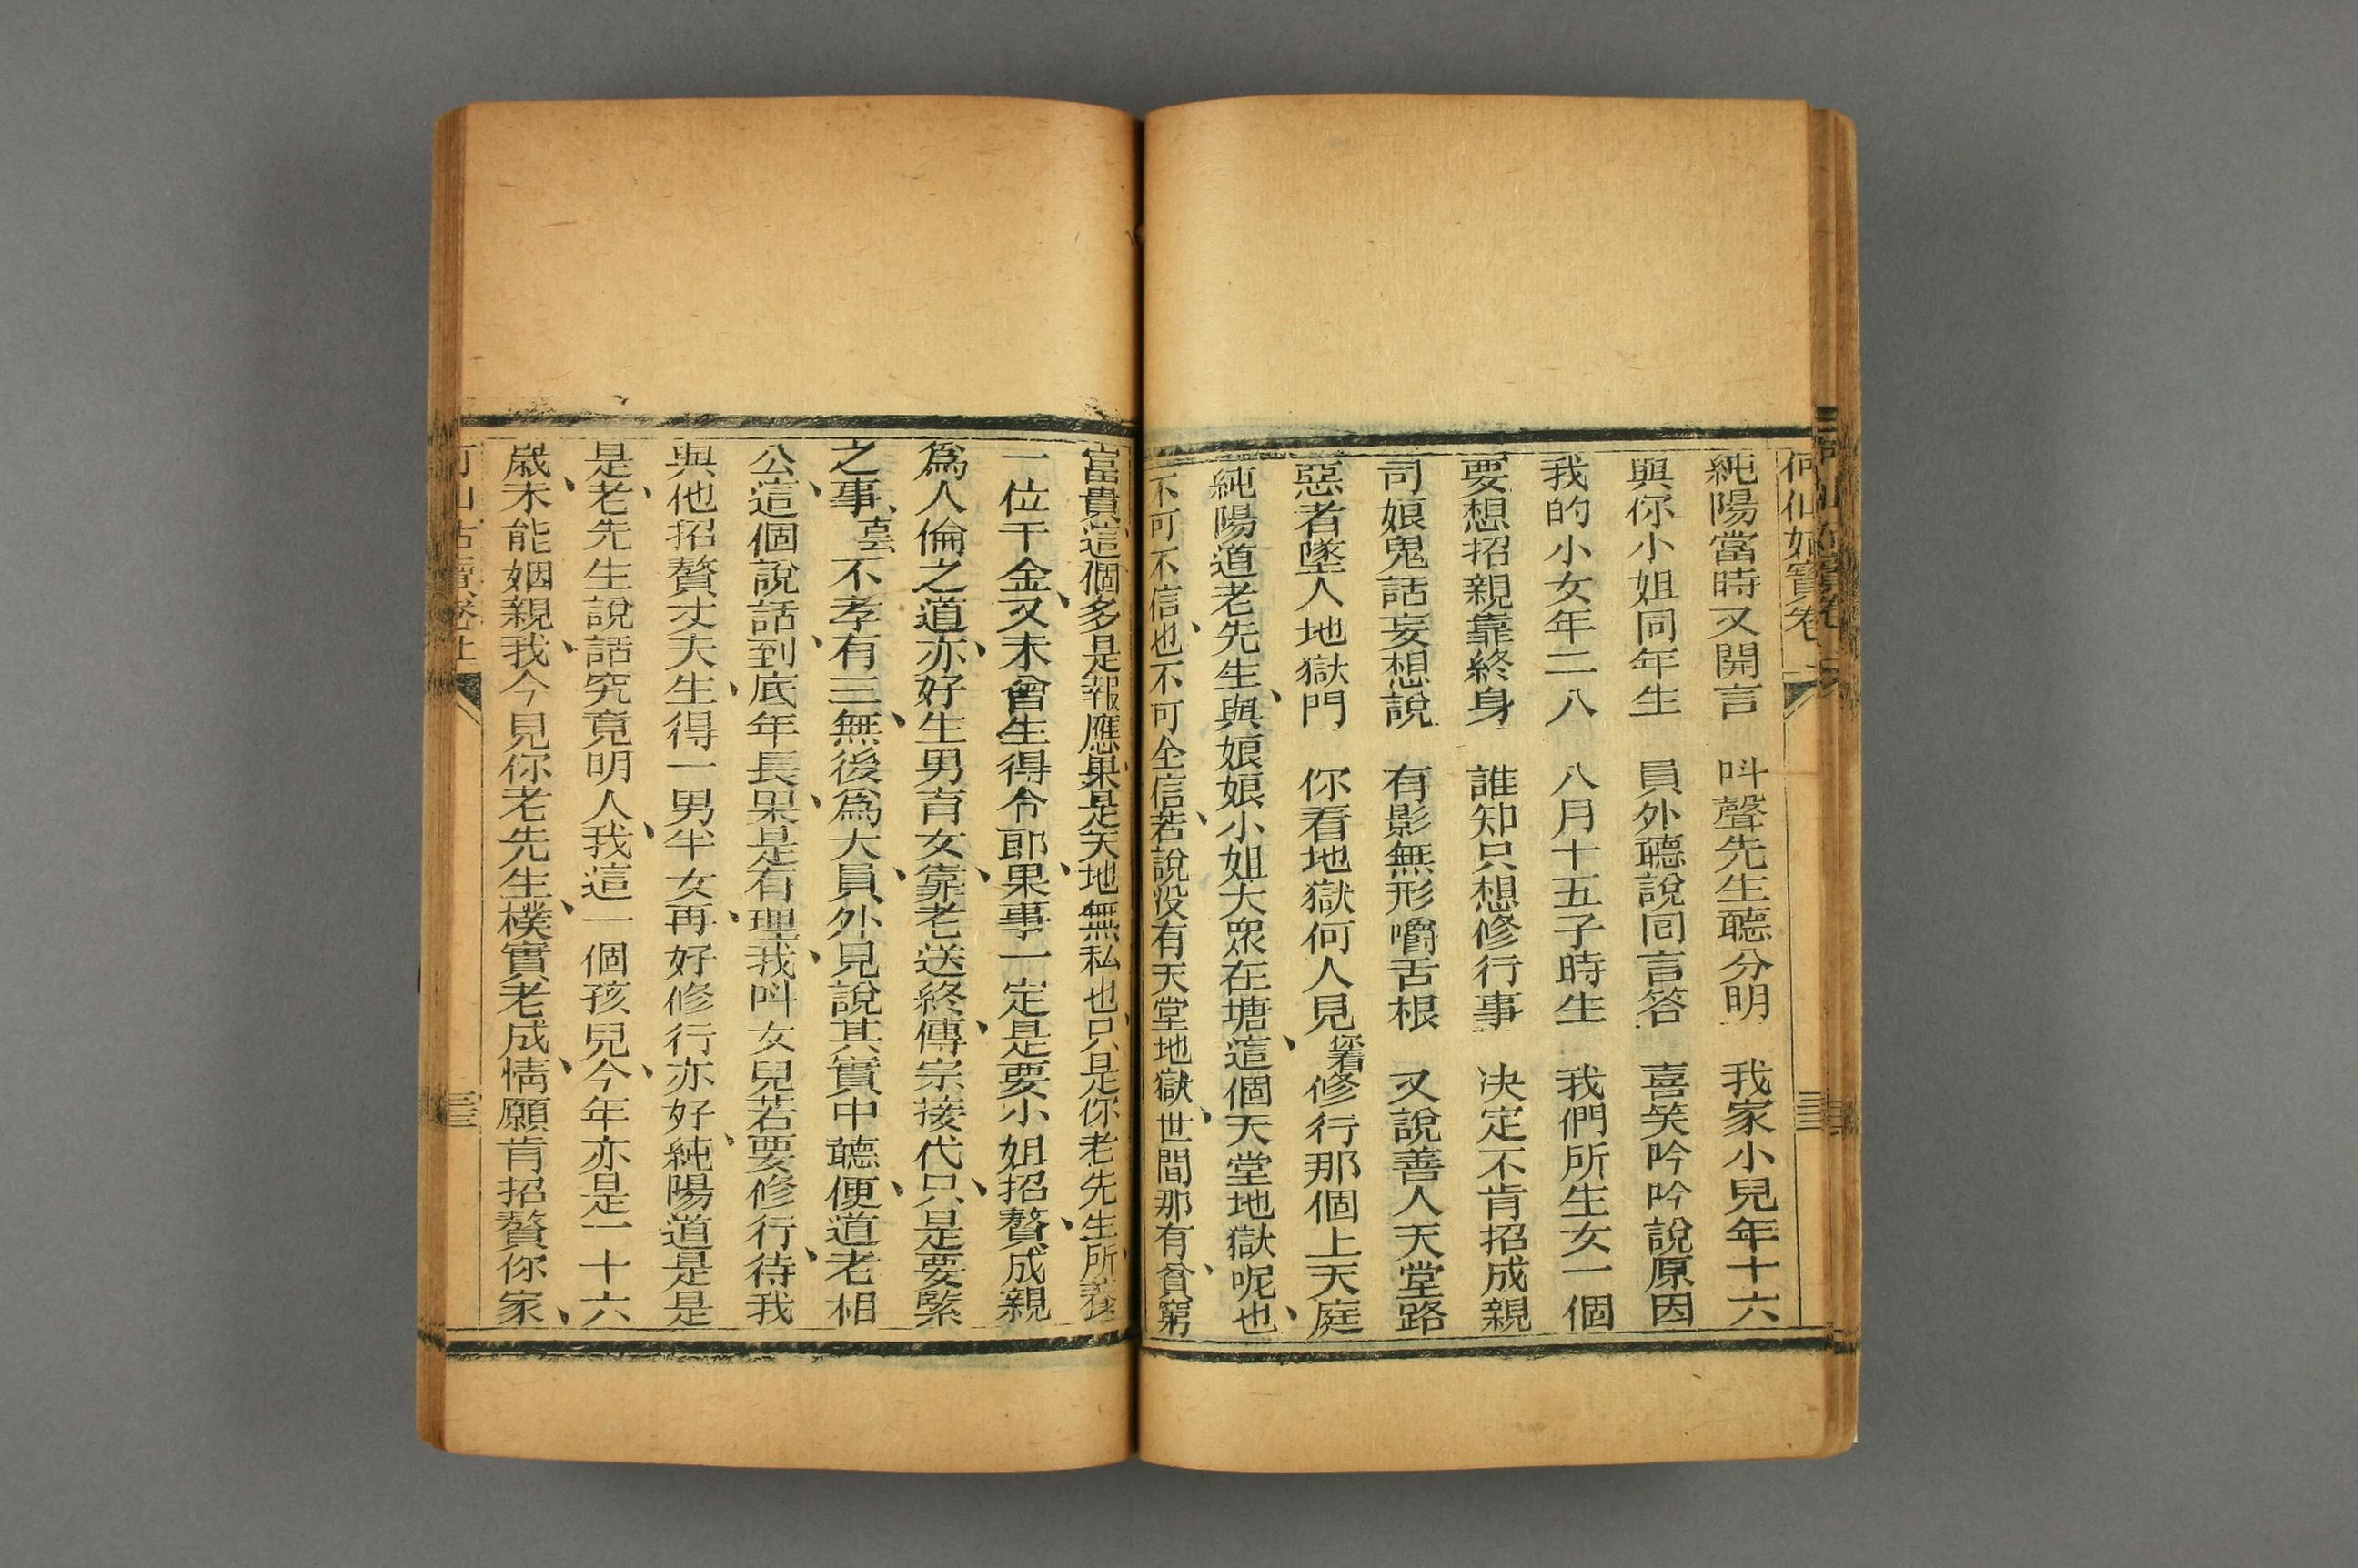 何仙姑寶卷
純陽當時又開言 呌聲先生聽分明 我家小兒年十六
與你小姐同年生 員外聽說回言答 喜笑吟吟說原因
我的小女年二八 八月十五子時生 我們所生女一個
要想招親靠終身 誰知只想修行事 决定不肯招成親
司娘鬼話妄想說 有影無形嚼舌根 又說善人天堂路
惡者墜人地獄門 你看地獄何人見 修行那個上天庭
純陽道老先生、與娘娘小姐大衆在塘、這個天堂地獄呢也、
不可不信也、不可全信、若說没有天堂地獄、世間那有貧窮
富貴、這個多是報應、果是天地無私也、只是你老先生、所養
一位千金、又未曾生得令郎、果事一定是要小姐招贅、成親
爲人倫之道、亦好生男育女、靠老送終、傳宗接代、只是要緊
之事、書云不孝有三、無後爲大、員外見說、其實中聽、便道老相
公、這個說話、到底年長、果是有理、我呌女兒若要修行、待我
與他招贅丈夫、生得一男半女、再好修行亦好、純陽道是是
是、老先生說話究竟明人、我這一個孩兒、今年亦是一十六
歲、未能姻親、我今見你老先生、樸實老成、情願肯招贅你家、
三